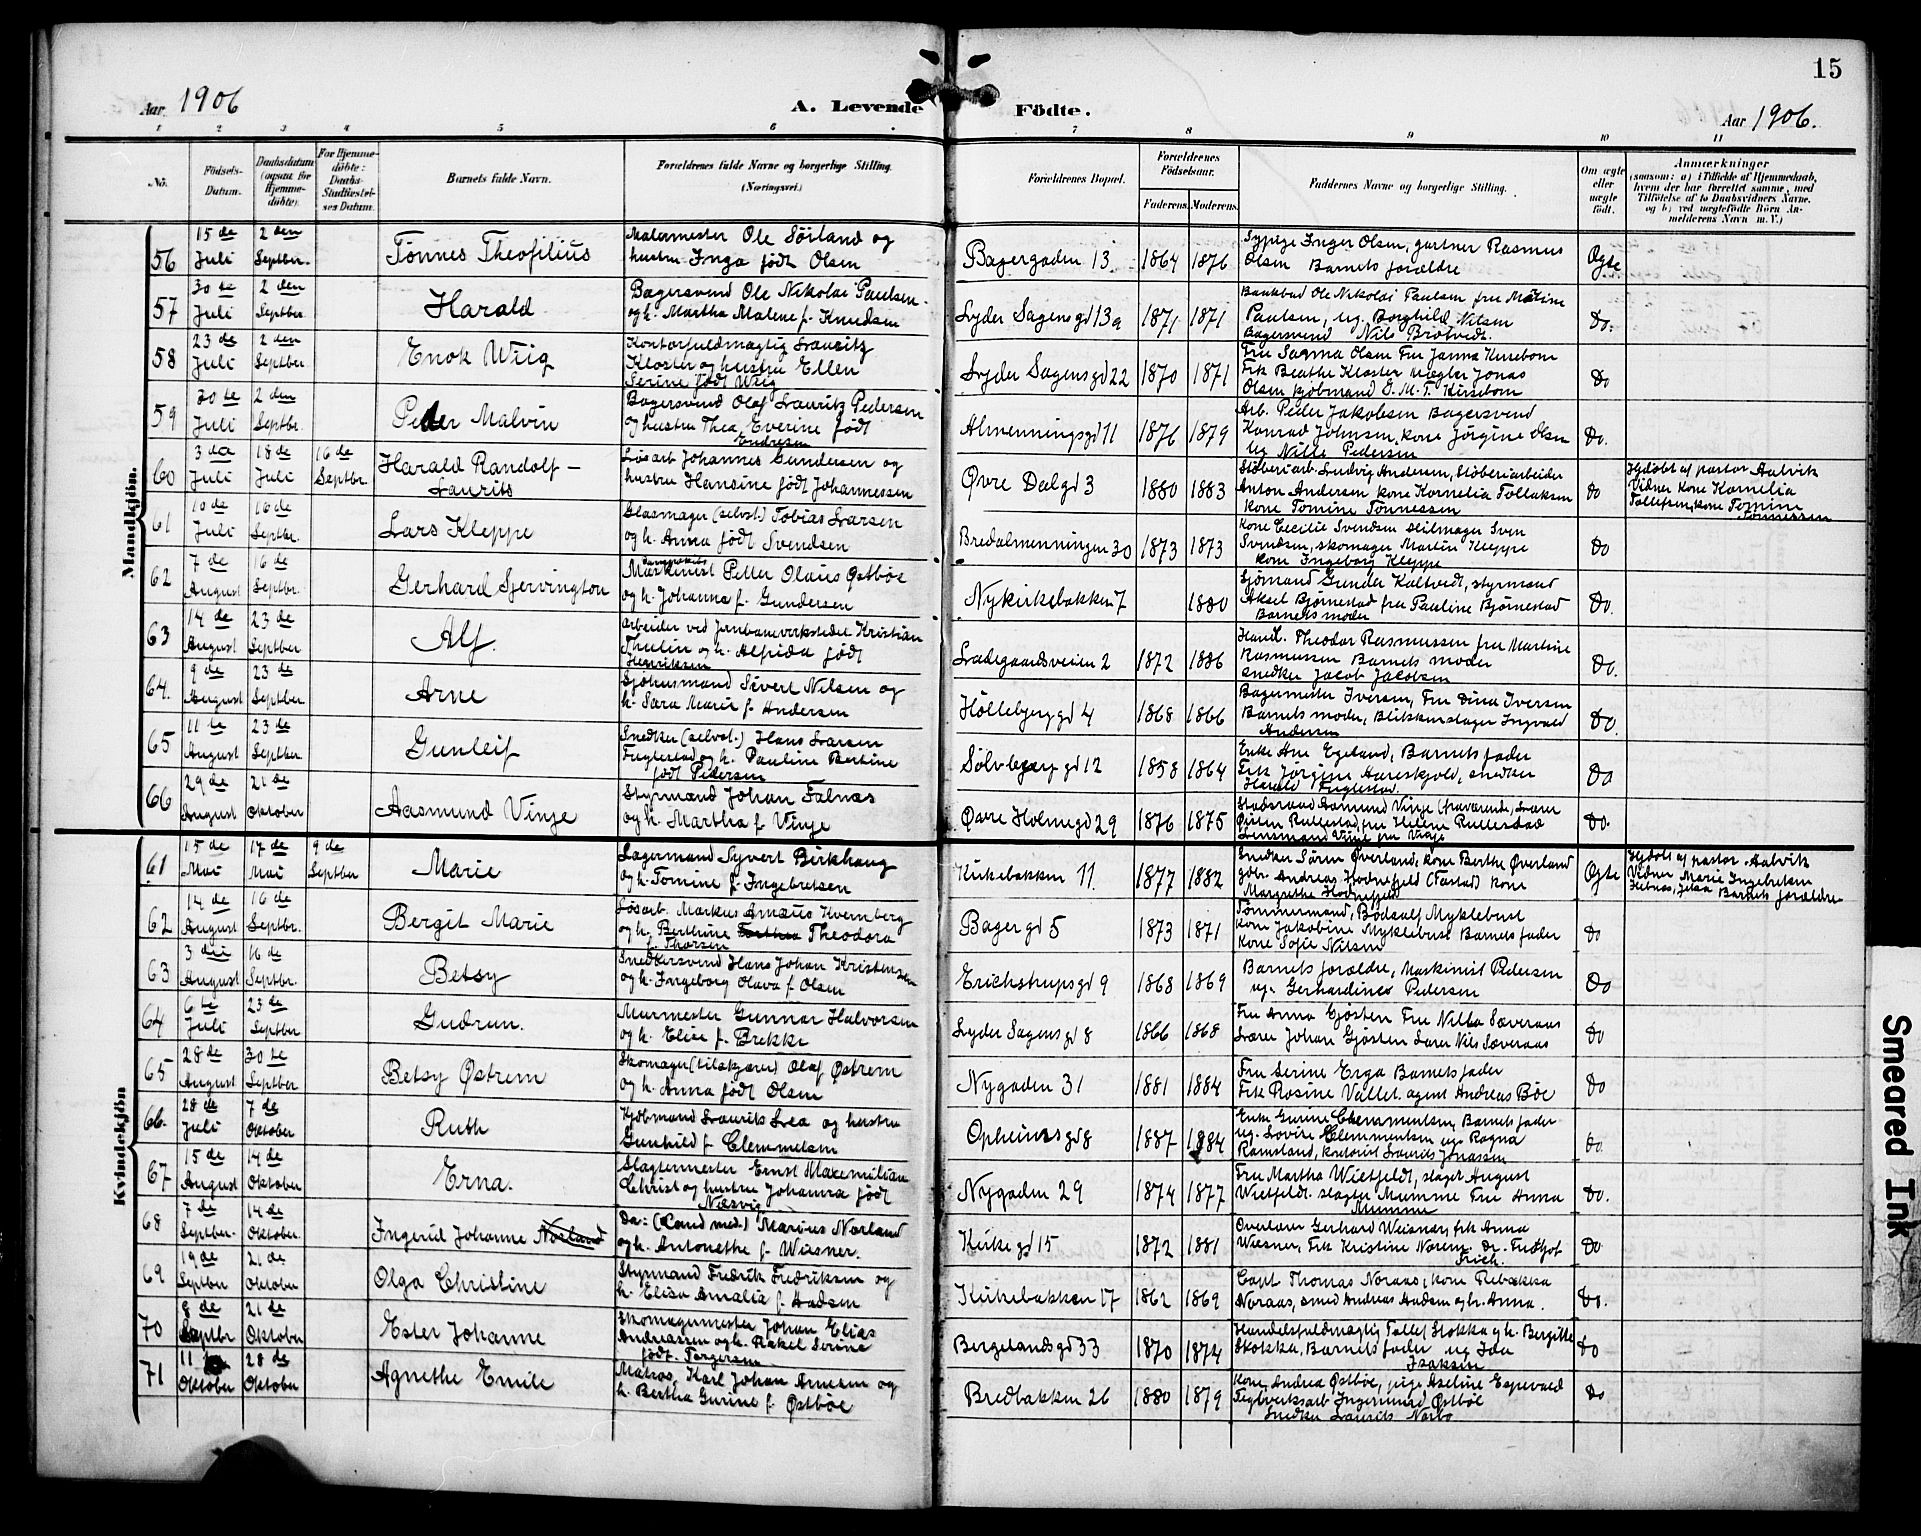 15
Aar 1906
A. Levende Födte.
Aar 1906.
1 2 3 4 5 6 7 8 9 10 11
No.
Födsels-Datum.
Daabsdatum (ogsaa for Hjemme-döbte).
For Hjemme-döbte: Daabs-Stadfæstel-ses Datum.
Barnets fulde Navn.
Forældrenes fulde Navne og borgerlige Stilling. (Næringsvei.)
Forældrenes Bopæl.
Forældrenes Födselsaar.
Faderens. Moderens.
Faddernes Navne og borgerlige Stilling.
Om ægte eller uægte födt.
Anmærkninger
(saasom: a) i Tilfælde af Hjemmedaab, hvem der har forrettet samme, med Tilföielse af to Daabsvidners Navne, og b) ved uægtefödte Börn An-melderens Navn m. V.)
Mandkjön.
56 15de Juli 2den Septbr. Tönnes Theofilius Malermester Ole Sörland og hustru Inga født Olsen Bagergaden 13 1864 1876 Sypige Inger Olsen, gartner Rasmus Olsen Barnets forældre Ægte
57 30te Juli 2den Septbr Harald Bagersvend Ole Nikolai Paulsen og h. Martha Malene f. Knudsen Lyder Sagens gd 13a 1871 1871 Ole Nikolai Paulsen fru Paulsen, ug. Borghild Nilsen Bagersvend Nils Do.
58 23de Juli 2den Septbr Enok Wiig Kontorfuldmægtig Lauritz Kloster og hustru Ellen Serine født Wiig Lyder Sagens gd 22 1870 1871 Fru Sagma Olsen Fru Janna Kirsebom Frk Beathe Kloster Mægler Jonas Olsen kjøbmand G. M. T. Kirsebom Do
59 30te Juli 2den Septbr. Peder Malvin Bagersvend Olaf Lauritz Pedersen og hustru Thea Everine født Endresen Almenningsgd 11 1876 1879 Arb. Peder Jakobsen Bagersvend Konrad Johnsen, kone Jörgine Olsen ug Nille Pedersen Do.
60 3die Juli 18de Juli 16de Septbr Harald Randolf - Laurits Løsarb Johannes Gundersen og hustru Hansine født Johannessen Øvre Dalgd 3 1880 1883 Støberiarb. Ludvig Andersen, Støberiarbeider Anton Andersen kone Kornelia Tollaksen kone Tomine Tönnessen Do Hjdøbt af pastor Aalvik Vidner Kone Kornelia Tollefsen, kone Tomine Tönnessen
61 10de Juli 16de Septbr. Lars Kleppe Glasmager (selvst.) Tobias Larsen og h. Anna født Svendsen Bredalmenningen 30 1873 1873 Kone Cecilie Svendsen Seilmager Sven Svendsen, skomager Martin Kleppe kone Ingeborg Kleppe Do
62 7de August 16de Septbr. Gerhard Sjervington Maskinist Petter Olaus Østbøe og h. Johanna f. Gundersen Nykirkebakken 7 1880 Sjømand Gunder Kaltvedt, styrmand Aksel Bjørnestad fru Pauline Bjørnestad Barnets moder Do.
63 14de August 23de Septbr Alf. Arbeider ved Jernbaneverkstedet Kristian Thulin og h. Alfrida født Henriksen Ladegaardsveien 2 1872 1886 Handl. Theodor Rasmussen fru Martine Rasmussen Barnets moder snedker Jacob Jacobsen Do.
64. 9de August 23de Septbr Arne Sjøhusmand Sivert Nilsen og h. Sara Marie f. Andersen Höllebjerggd 4 1868 1866 Bagermester Iversen, Fru Dina Iversen Barnets moder, Blikkenslager Ingvald Andersen Do.
65 11te August 23de Septbr Gunleif Snedker (selvst.) Hans Larsen Fuglestad og h. Pauline Bertine født Pedersen Sölvbergd 12 1858 1864 Enke Ane Egeland, Barnets fader Frk Jörgine Aareskjold, snedker Harald Fuglestad. Do
66 29de August 21de Oktober Aasmund Vinje Styrmand Johan Falnæs og h. Martha f. Vinje Øvre Holmegd 29 1876 1875 Stadsraad Aamund Vinje (fraværende), Lærer Rullestad, fru Helene Rullestad Lensmand Vinje fra Do.
Kvindekjön
61 15de Mai 17de Mai 9de Septbr Marie Lagermand Syvert Birkhaug og h. Tomine f. Ingebretsen Kirkebakken 11. 1877 1882 Snedker Sören Øverland, kone Berthe Øverland gdbr. Andreas Hodnefjeld (Fastad) kone Margrethe Hodnefjeld Ægte Hjdøbt af pastor Aalvik Vidner Marie Ingebretsen Jelsa Barnets forældre
62 14de August 16de Septbr. Bergit Marie Løsarb. Markus Amæus Kvernberg og h. Berthine Theodora f. Thorsen Bagergd 5 1873 1871 Tömmermand, Bødsalf Myklebust Kone Jakobine Myklebust Barnets fader Kone Sofie Nilsen Do
63 3die August 16de Septbr. Betsy Snedkersvend Hans Johan Kristensen og h. Ingeborg Olava f. Olsen Erichstrupsgd 9 1868 1869 Barnets forældre, Maskinist Pedersen ug. Gerhardines Pedersen Do
64 6te Juli 23de Septbr Gudrun. Murmester Gunnar Halvorsen og h. Elise f. Brekke Lyder Sagensgd 8 1866 1868 Fru Anna Gjøsten Fru Nilla Sæveraas Lærer Johan Gjøsten Lærer Nils Sæveraas Do
65 28de August 30te Septbr Betsy Østrem Skomager (tilskjærer) Olaf Østrem og h. Anna født Olsen Nygaden 31 1881 1884 Fru Serine Erga Barnets fader Frk Rosine Vallet. agent Andreas Bøe Do
66. 28de Juli 7de Oktober Ruth Kjøbmand Laurits Lea og hustru Gunhild f. Clemmetsen Opheimsgd 8 1887 1884 Enke Gurine Clemmentsen, Barnets fader ug. Lovise Clemmentsen ug. Ragna Ramsland, kontorist Laurits Jonassen Do.
67 15de August 14de Oktober Erna. Slagtermester Ernst Maxemilian Christ og hustru Johanna født Næsvig Nygaden 29 1874 1877 Fru Martha Wietfeldt, slagt August Wietfeldt. slagter Mumme Fru Anna Mumme Do.
68 7de Septber. 14de Oktober. Ingerid Johanne Norland Dr: (Cand med.) Marius Norland og h. Antonethe f. Wiesner. Kirkegd 15 1872 1881 Overlærer Gerhard Wiesner, frk Anna Wiesner, Frk Kristine Norem Dr. Fridtjof Frich. Do
69 19de Septber 21de Oktober Olga Christine Styrmand Fredrik Fredriksen og h. Elisa Amalia f. Aadsen Kirkebakken 17 1862 1869 Capt Thomas Noraas, kone Rebækka Noraas, smed Andreas Aadsen og h. Anna. Do.
70 8de Septbr 21de Oktober Ester Johanne Skomagermester Johan Elias Andreassen og h. Rakel Serine født. Torgersen Bergelandsgd 33 1870 1874 Handelsfuldmægtig Tollef Stokka og h. Bergitte Stokka, Barnets fader ug Ida Isaksen Do
71 11 Oktober 28de Oktober Agnethe Emilie Matros, Karl Johan Arnesen og h. Bertha Gurine f. Østbøe Bredbakken 26 1880 1879 Kone Andrea Østbøe, pige Aseline Espevald Teglverksarb Ingemund Østbøe Snedker Laurits Norbo Do
Smeared Ink